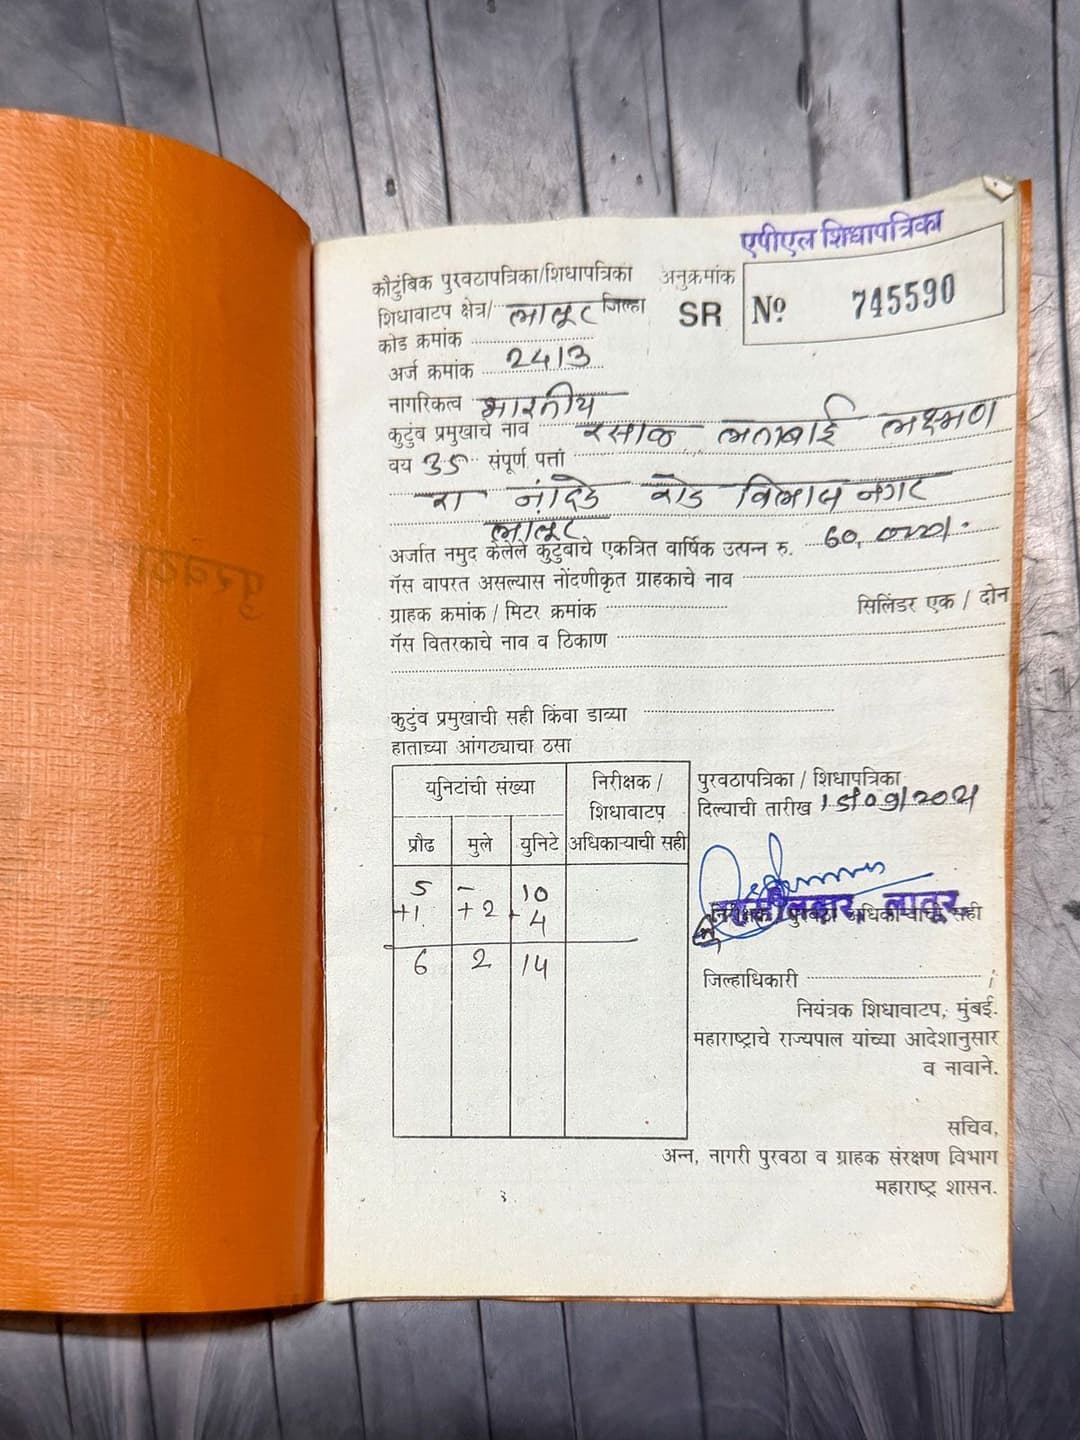 एपीएल शिधापत्रिका
कौटुंबिक पुरवठापत्रिका/शिधापत्रिका अनुक्रमांक
शिधावाटप क्षेत्र/ लातूर जिल्हा SR Nº 745590
कोड क्रमांक
अर्ज क्रमांक 2413
नागरिकत्व भारतीय
कुटुंब प्रमुखाचे नाव रसाळ लताबाई लक्ष्मण
वय 35 संपूर्ण पत्ता
रा नांदेडे रोड विलास नगर
लातूर
अर्जात नमुद केलेले कुटुंबाचे एकत्रित वार्षिक उत्पन्न रु. 60,000/.
गॅस वापरत असल्यास नोंदणीकृत ग्राहकाचे नाव
ग्राहक क्रमांक / मिटर क्रमांक सिलिंडर एक / दोन
गॅस वितरकाचे नाव व ठिकाण
कुटुंव प्रमुखाची सही किंवा डाव्या
हाताच्या आंगठ्याचा ठसा
युनिटांची संख्या निरीक्षक / शिधावाटप अधिकाऱ्याची सही
प्रौढ मुले युनिटे
5 - 10
+1 +2 +4
6 2 14
पुरवठापत्रिका / शिधापत्रिका
दिल्याची तारीख 15/09/2021
लातूर
निरीक्षक / पुरवठा अधिकाऱ्याची सही
जिल्हाधिकारी
नियंत्रक शिधावाटप, मुंबई.
महाराष्ट्राचे राज्यपाल यांच्या आदेशानुसार
व नावाने.
सचिव,
अन्न, नागरी पुरवठा व ग्राहक संरक्षण विभाग
महाराष्ट्र शासन.
३